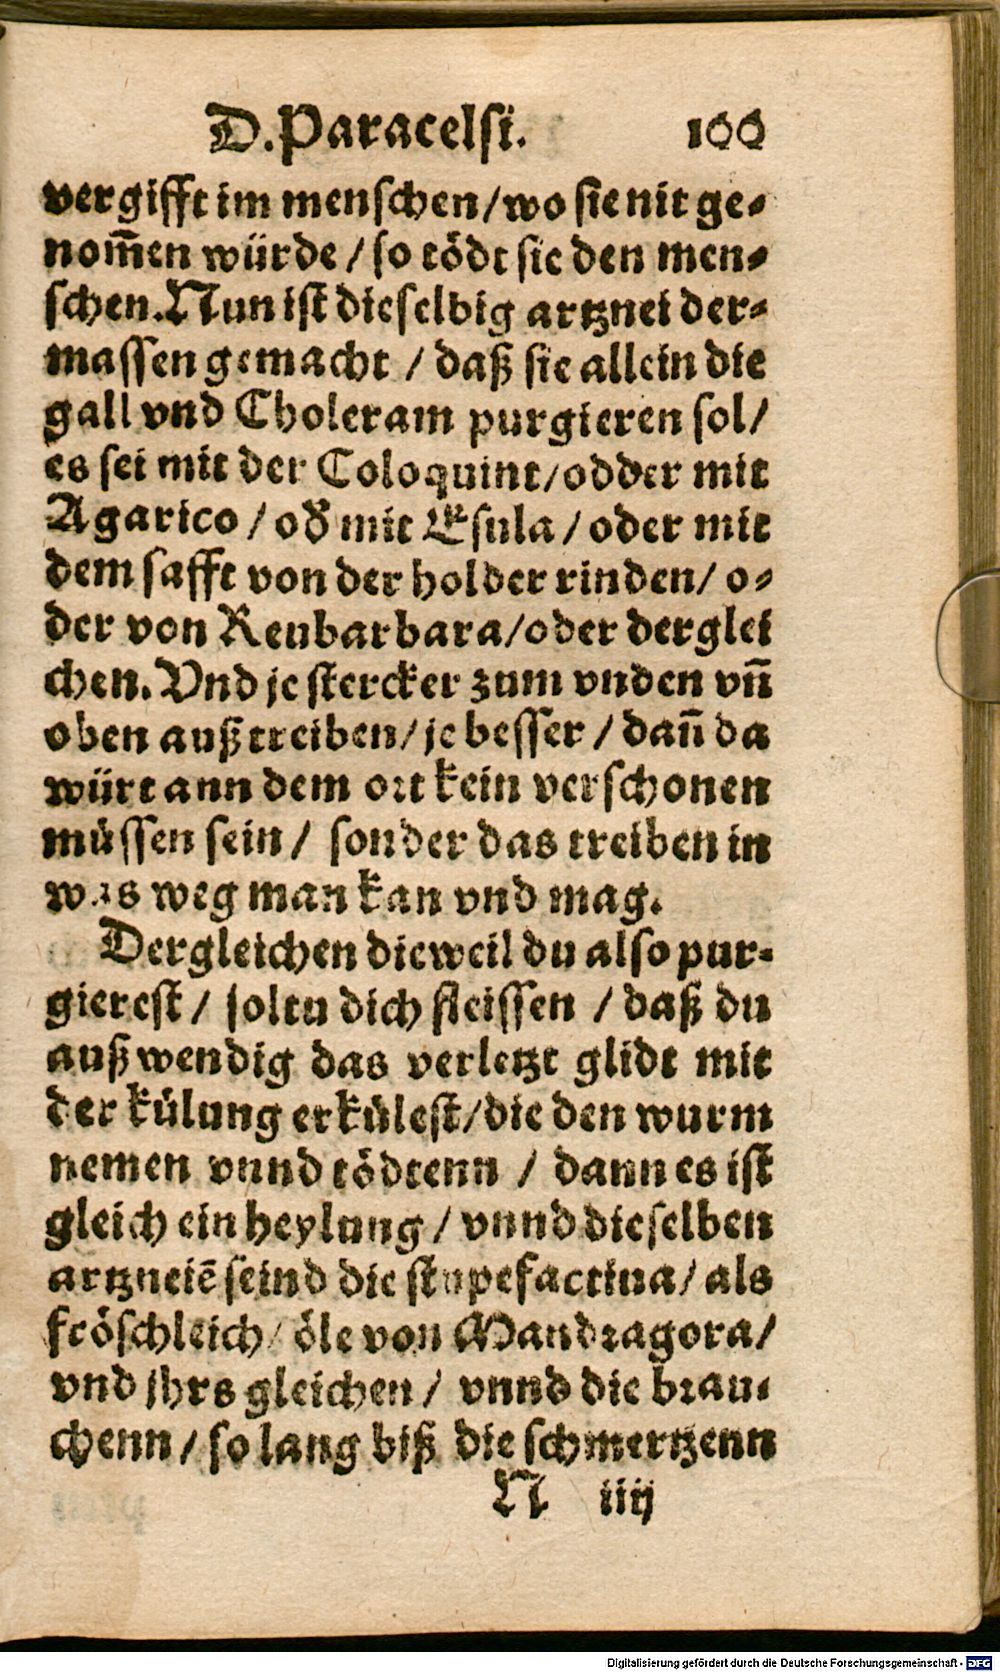 D. Paracelsi. 100
vergifft im menschen/wo sie nit ge⸗
nom̃en würde / so tödt sie den men⸗
schen. Nun ist dieselbig artznei der⸗
massen gemacht / daß sie allein die
gall vnd Choleram purgieren sol/
es sei mit der Coloquint/odder mit
Agarico / oď mit Esula / oder mit
dem safft von der holder rinden/ o⸗
der von Reubarbara/oder derglei
chen. Vnd je stercker zum vnden vñ
oben auß treiben/ je besser / dañ da
würt ann dem ort kein verschonen
müssen sein / sonder das treiben in
was weg man kan vnd mag.
Dergleichen dieweil du also pur⸗
gierest / soltu dich fleissen / daß du
außwendig das verletzt glidt mit
der külung erkülest/die den wurm
nemen vnnd tödtenn / dann es ist
gleich ein heylung / vnnd dieselben
artzneiẽ seind die stupefactiua/ als
fröschleich/ öle von Mandragora/
vnd jhrs gleichen / vnnd die brau⸗
chenn / so lang biß die schmertzenn
N iiij
Digitalisierung gefördert durch die Deutsche Forschungsgemeinschaft - DFG